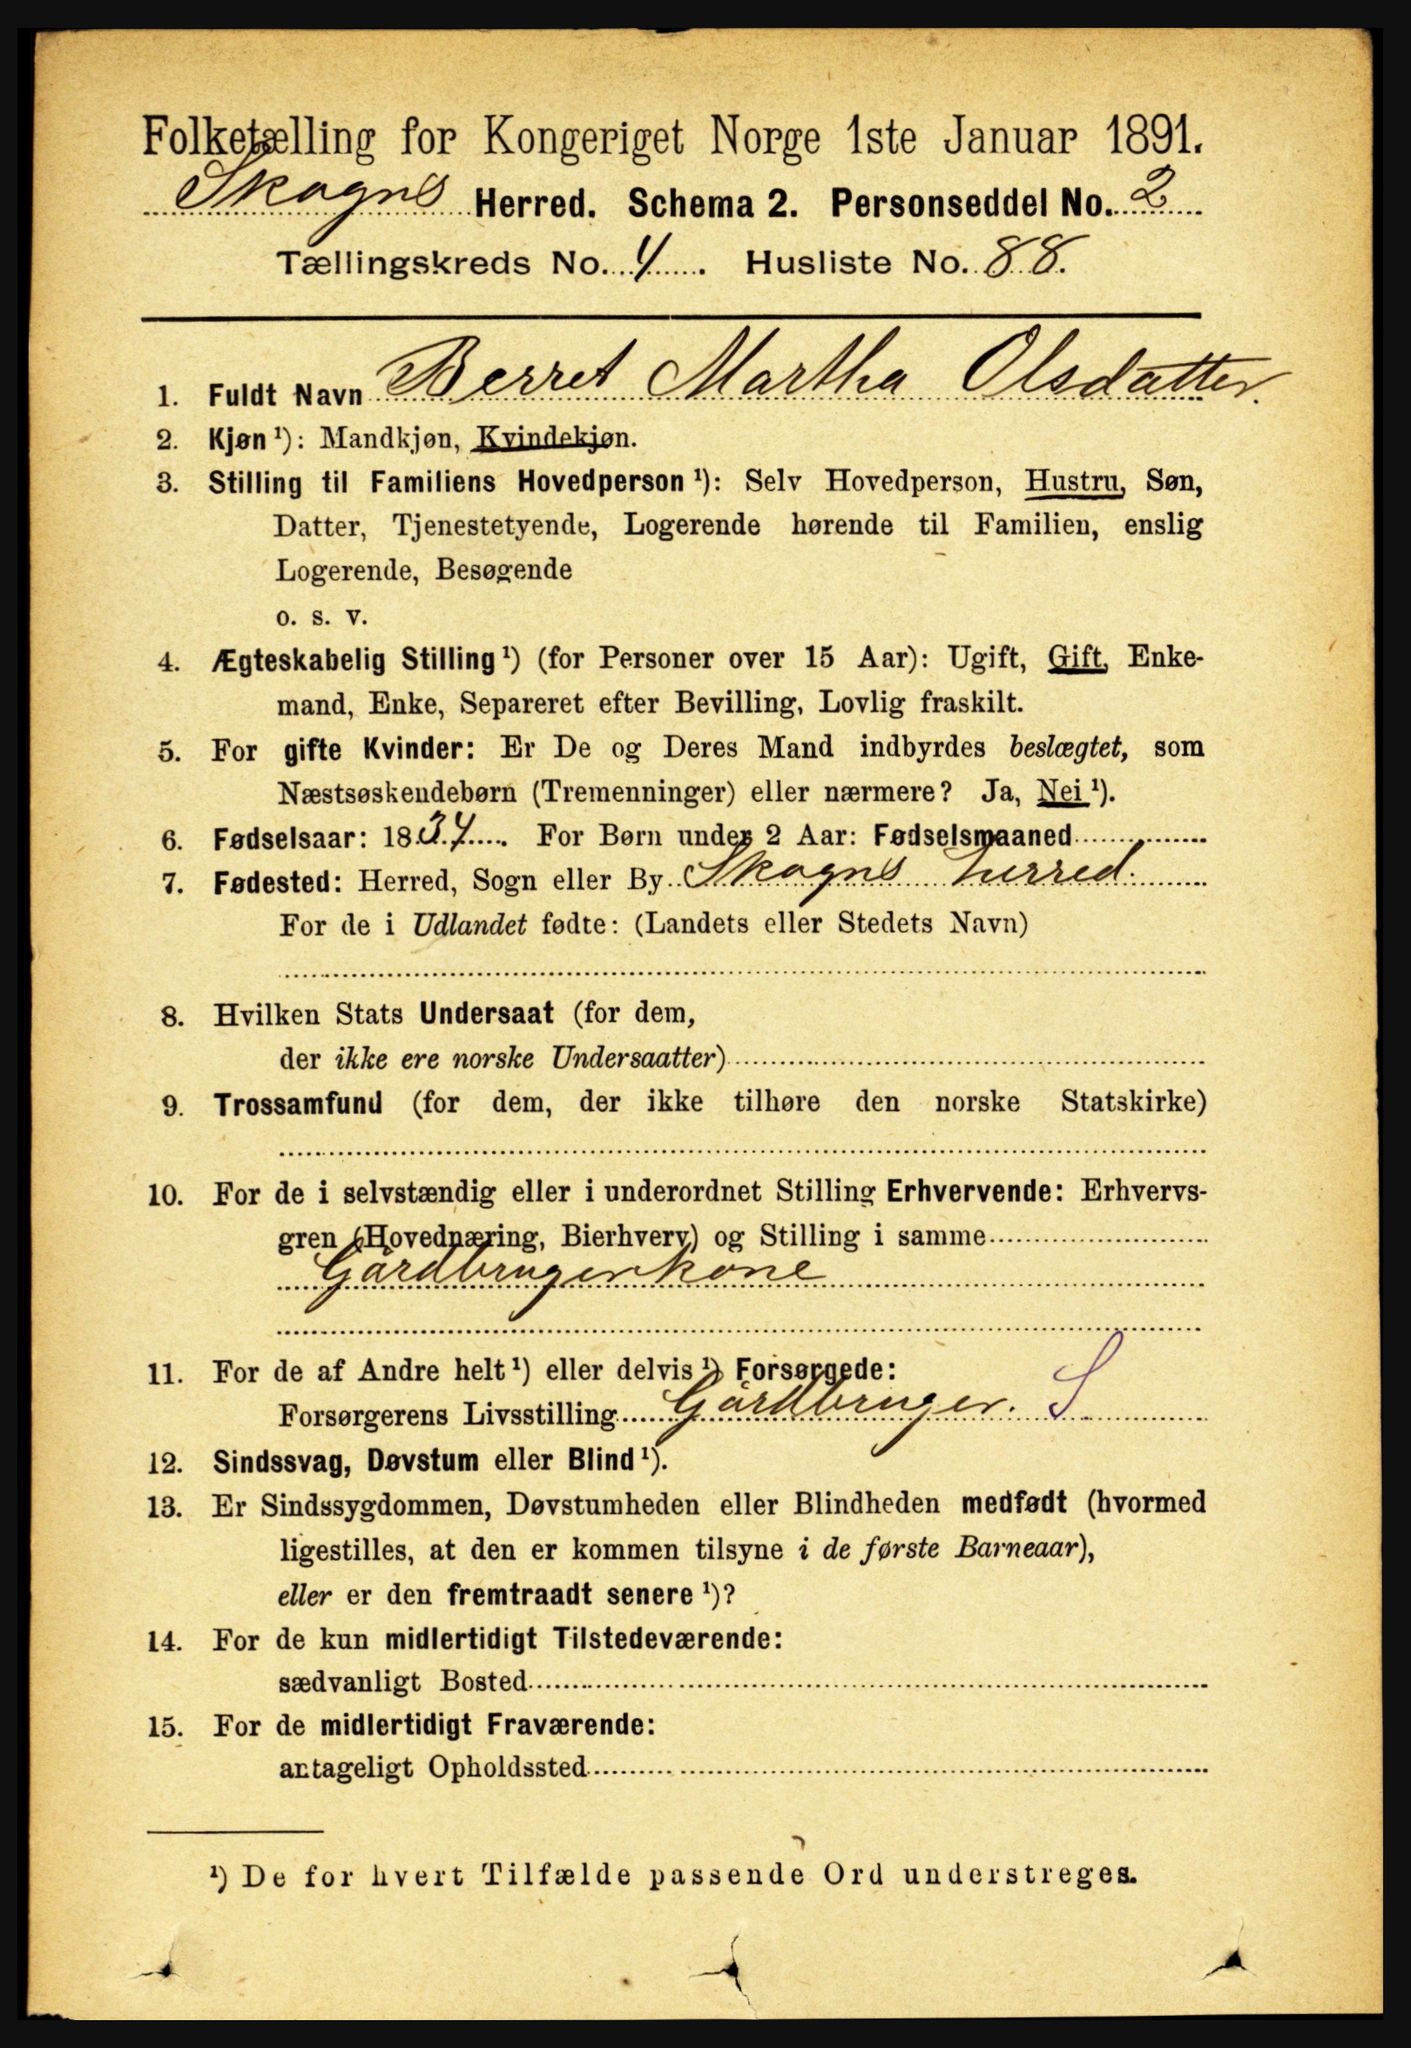 Folketælling for Kongeriget Norge 1ste Januar 1891.
Skogns Herred. Schema 2. Personseddel No. 2
Tællingskreds No. 4. Husliste No. 88.
1. Fuldt Navn Berret Martha Olsdatter.
2. Kjøn ¹): Mandkjøn, Kvindekjøn.
3. Stilling til Familiens Hovedperson ¹): Selv Hovedperson, Hustru, Søn,
Datter, Tjenestetyende, Logerende hørende til Familien, enslig
Logerende, Besøgende
o. s. v.
4. Ægteskabelig Stilling ¹) (for Personer over 15 Aar): Ugift, Gift, Enke-
mand, Enke, Separeret efter Bevilling, Lovlig fraskilt.
5. For gifte Kvinder: Er De og Deres Mand indbyrdes beslægtet, som
Næstsøskendebørn (Tremenninger) eller nærmere? Ja, Nei ¹).
6. Fødselsaar: 1834. For Børn under 2 Aar: Fødselsmaaned
7. Fødested: Herred, Sogn eller By Skogns herred.
For de i Udlandet fødte: (Landets eller Stedets Navn)
8. Hvilken Stats Undersaat (for dem,
der ikke ere norske Undersaatter)
9. Trossamfund (for dem, der ikke tilhøre den norske Statskirke)
10. For de i selvstændig eller i underordnet Stilling Erhvervende: Erhvervs-
gren (Hovednæring, Bierhverv) og Stilling i samme
Gårdbrugerkone
11. For de af Andre helt ¹) eller delvis ¹) Forsørgede:
Forsørgerens Livsstilling Gårdbruger. S
12. Sindssvag, Døvstum eller Blind ¹).
13. Er Sindssygdommen, Døvstumheden eller Blindheden medfødt (hvormed
ligestilles, at den er kommen tilsyne i de første Barneaar),
eller er den fremtraadt senere ¹)?
14. For de kun midlertidigt Tilstedeværende:
sædvanligt Bosted
15. For de midlertidigt Fraværende:
antageligt Opholdssted
¹) De for hvert Tilfælde passende Ord understreges.